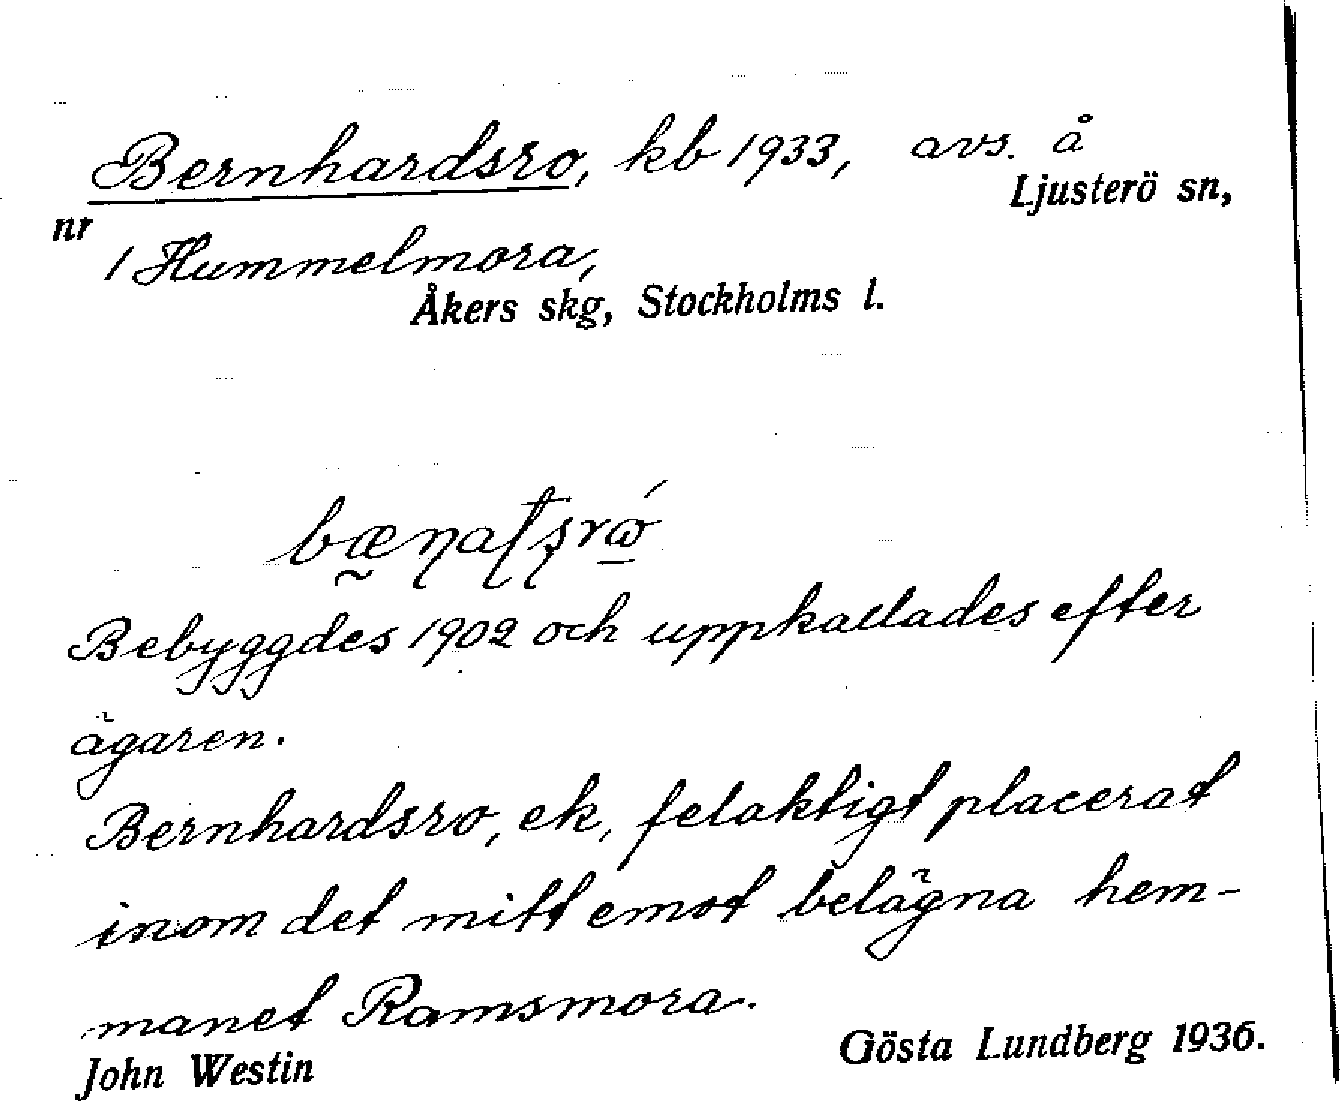 Bernhardsro, kb 1933, avs. å
Ljusterö sn,
nr
1 Hummelmora,
Åkers skg, Stockholms l.
Bebyggdes 1902 och uppkallades efter
ägaren.
Bernhardsro, ek, felaktigt placerat
inom det mitt emot belägna hem-
manet Ramsmora.
John Westin
Gösta Lundberg 1936.